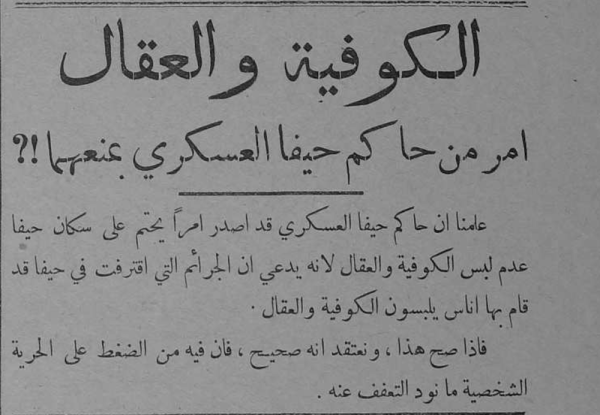 الكوفية والعقال
امر من حاكم حيفا العسكري بمنعهما !?
علمنا ان حاكم حيفا العسكري قد اصدر امراً يحتم على سكان حيفا
عدم لبس الكوفية والعقال لانه يدعي ان الجرائم التي اقترفت في حيفا قد
قام بها اناس يلبسون الكوفية والعقال .
فاذا صح هذا ، ونعتقد انه صحيح ، فان فيه من الضغط على الحرية
الشخصية ما نود التعفف عنه .